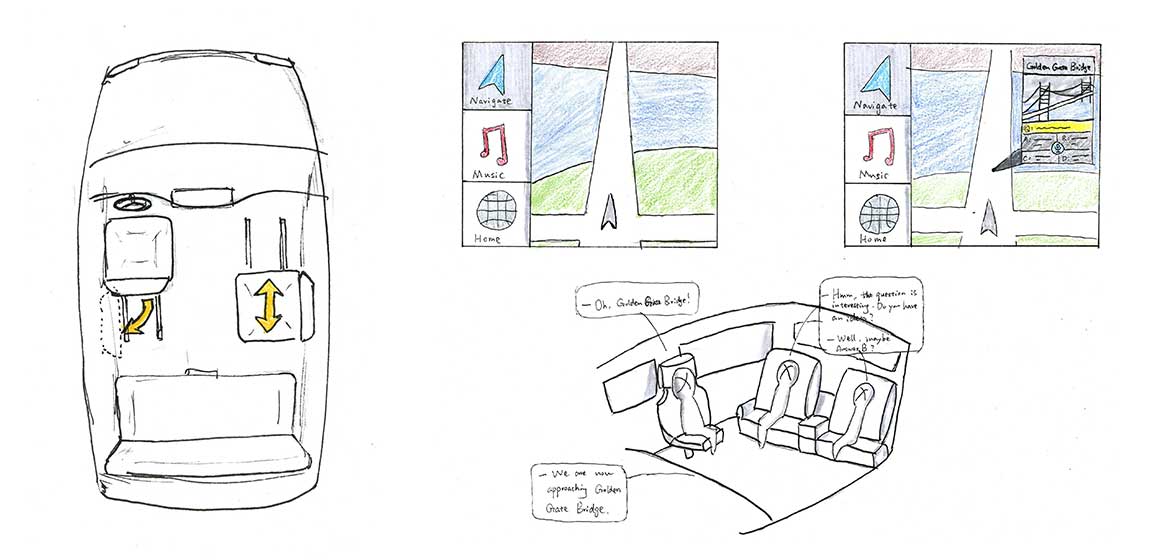 Navigate
Music
Home
Navigate
Music
Home
Golden Gate Bridge
Q:
A:
B:
C:
D:
— Oh, Golden Gate Bridge!
— Hmm, the question is
interesting. Do you have
an idea?
— Well, maybe
Answer B?
— We are now
approaching Golden
Gate Bridge.